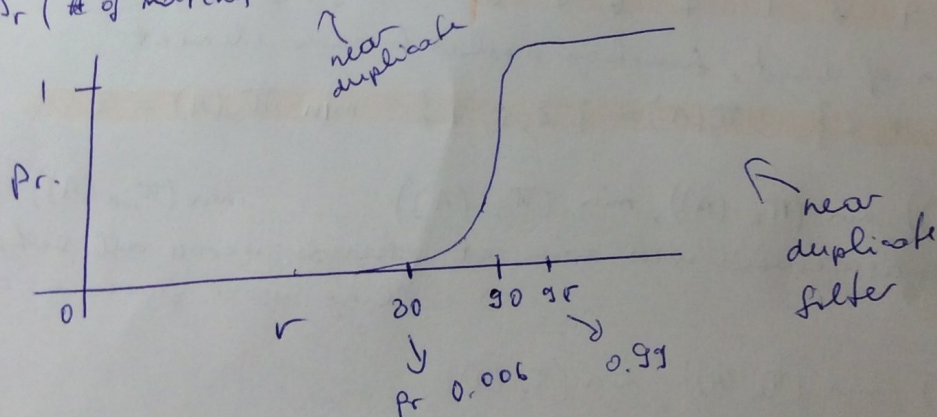 Pr (# of
near
duplicate
1
Pr.
near
duplicate
filter
0
r
80
90
95
Pr 0.006
0.99